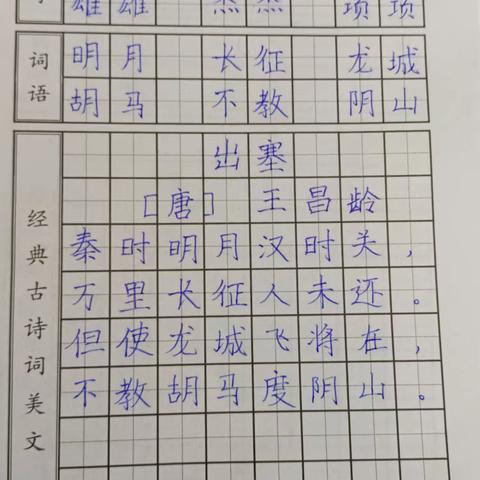 雄 雄 杰 杰 项 项
词语
明月 长征 龙城
胡马 不教 阴山
经典古诗词美文
出塞
[唐] 王昌龄
秦时明月汉时关，
万里长征人未还。
但使龙城飞将在，
不教胡马度阴山。